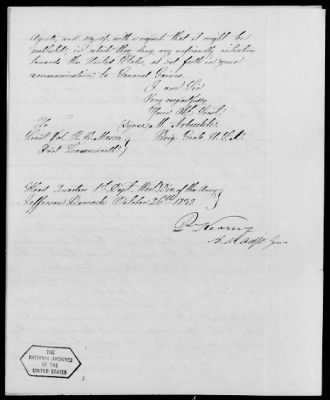 Agents, and myself, with a request that it might be
published, in which they deny any unfriendly intention
towards the United States, as set forth in your
communication to General Gaines.
I am Sir
Very respectfully
Your Obt Servt
To (Signed) M. Arbuckle
Lieut Col. R. B. Mason Brig. Genl U.S.A.
Fort Leavenworth
Head Quarters Dept. West. Div. of the Army
Jefferson Barracks October 26th 1839
P. Kearny
THE
NATIONAL ARCHIVES
OF THE
UNITED STATES